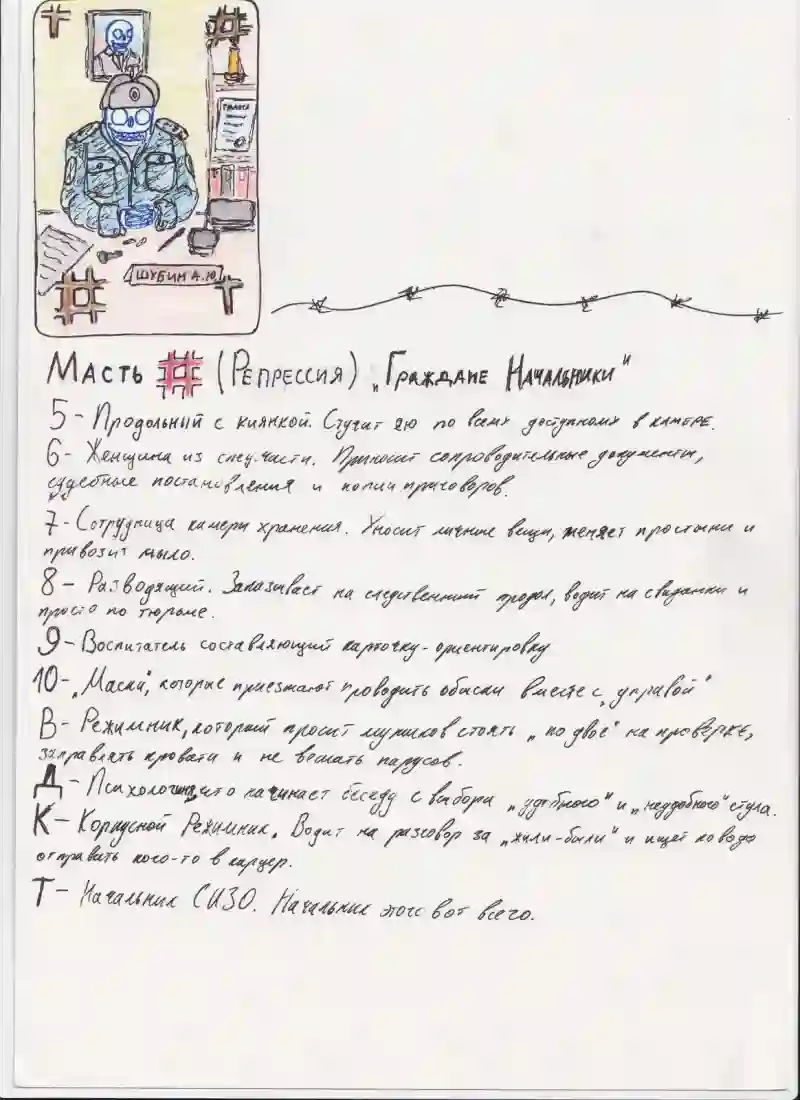 Т
#
ГРАМОТА
ШУБИН А.Ю
# Т
Масть # (Репрессия) „Граждане Начальники"
5 - Продольный с киянкой. Стучит ею по всему доступному в камере.
6 - Женщина из спец.части. Приносит сопроводительные документы,
судебные постановления и копии приговоров.
7 - Сотрудница камеры хранения. Уносит личные вещи, меняет простыни и
привозит мыло.
8 - Разводящий. Заказывает на следственный продол, водит на свиданки и
просто по тюрьме.
9 - Воспитатель составляющий карточку-ориентировку
10 - „Маски", которые приезжают проводить обыски вместе с „управой"
В - Режимник, который просит мужиков стоять „по двое" на проверке,
заправлять кровати и не вешать парусов.
Д - Психологиня, что начинает беседу с выбора „удобного" и „неудобного" стула.
К - Корпусной Режимник. Водит на разговор за „жили-были" и ищет повода
отправить кого-то в карцер.
Т - Начальник СИЗО. Начальник этого вот всего.